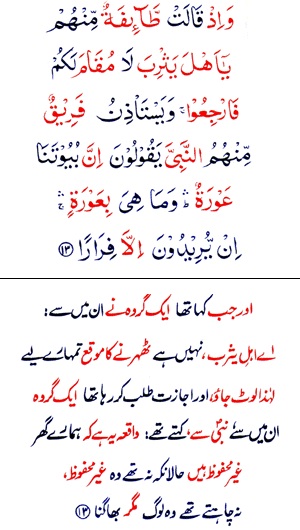 وَاِذْ قَالَتْ طَّآىِٕفَةٌ مِّنْهُمْ
يٰۤاَهْلَ يَثْرِبَ لَا مُقَامَ لَكُمْ
فَارْجِعُوْا ۚ وَيَسْتَاْذِنُ فَرِيْقٌ
مِّنْهُمُ النَّبِيَّ يَقُوْلُوْنَ اِنَّ بُيُوْتَنَا
عَوْرَةٌ ۛؕ وَمَا هِيَ بِعَوْرَةٍ ۛۚ
اِنْ يُّرِيْدُوْنَ اِلَّا فِرَارًا ﴿۱۳﴾
اور جب کہا تھا ایک گروہ نے ان میں سے:
اے اہلِ یثرب، نہیں ہے ٹھہرنے کا موقع تمہارے لیے
لہٰذا لوٹ جاؤ، اور اجازت طلب کر رہا تھا ایک گروہ
ان میں سے نبیؐ سے، کہتے تھے: واقعہ یہ ہے کہ ہمارے گھر
غیر محفوظ ہیں حالانکہ نہ تھے وہ غیر محفوظ،
نہ چاہتے تھے وہ لوگ مگر بھاگنا ﴿۱۳﴾